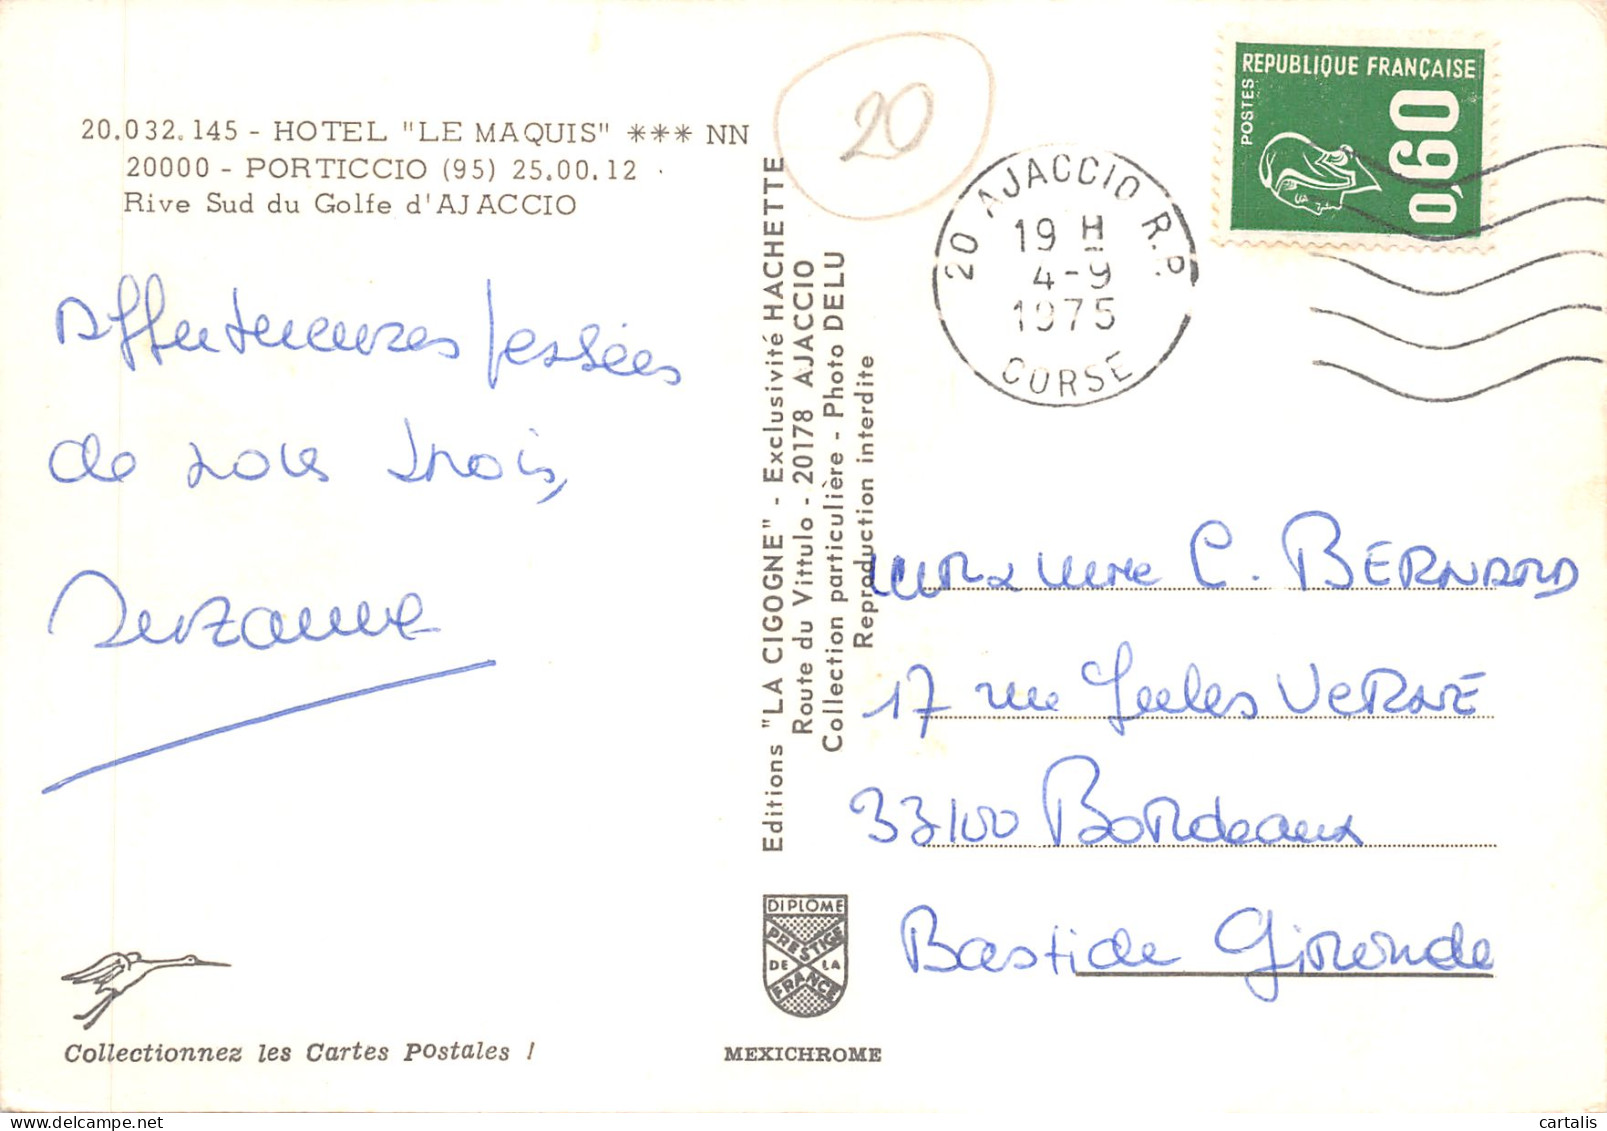 20.032.145 - HOTEL "LE MAQUIS" *** NN
20000 - PORTICCIO (95) 25.00.12
Rive Sud du Golfe d'AJACCIO
Affectueuses pensées
de nous trois,
Suzanne
Collectionnez les Cartes Postales !
Editions "LA CIGOGNE" - Exclusivité HACHETTE
Route du Vittulo - 20178 AJACCIO
Collection particulière - Photo DELU
Reproduction interdite
DIPLOME
PRESTIGE
DE LA
FRANCE
MEXICHROME
20
20 AJACCIO R.P.
19 H
4-9
1975
CORSE
REPUBLIQUE FRANÇAISE
POSTES
0,60
Madame C. BERNARD
17 rue Jules VERNE
33100 Bordeaux
Bastide Gironde
cartalis